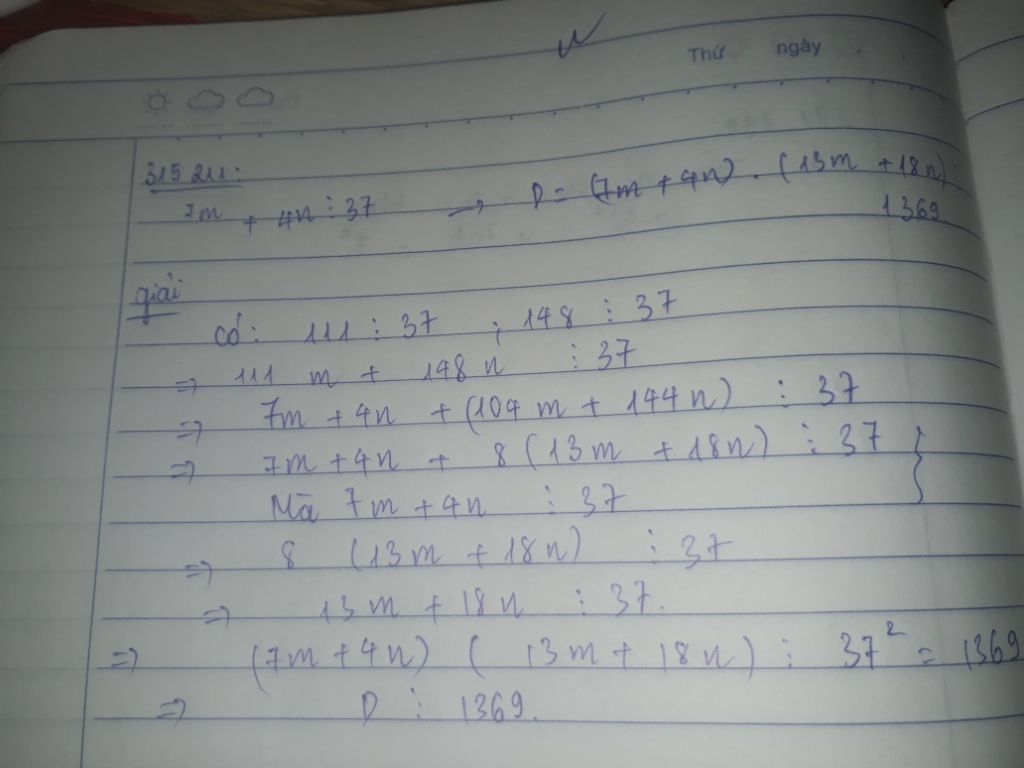 Thứ ngày
315 211:
7m + 4n ⋮ 37 → D = (7m + 4n) . (13m + 18n) ⋮
1369
giải
có: 111 ⋮ 37 ; 148 ⋮ 37
⇒ 111 m + 148 n ⋮ 37
⇒ 7m + 4n + (104 m + 144 n) ⋮ 37
⇒ 7m + 4n + 8 (13m + 18n) ⋮ 37 }
Mà 7m + 4n ⋮ 37
⇒ 8 (13m + 18n) ⋮ 37
⇒ 13m + 18n ⋮ 37.
⇒ (7m + 4n) ( 13m + 18n) ⋮ 37² = 1369
⇒ D ⋮ 1369.